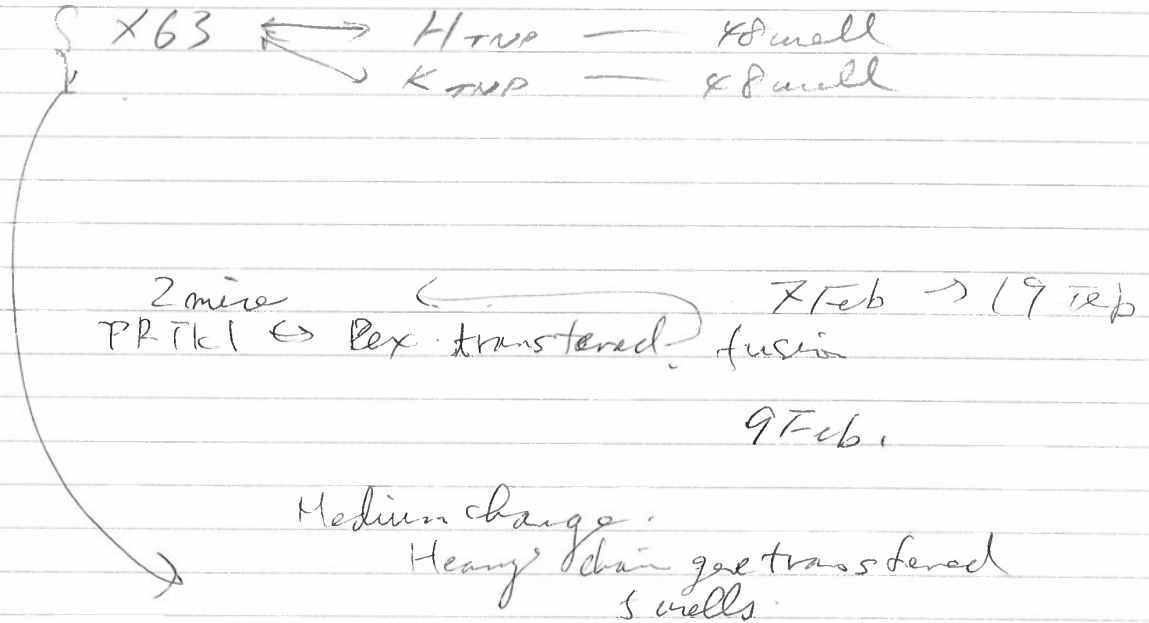 X63 ↔ H TNP — 48 well
K TNP — 48 well
2 mice ← 7 Feb → 19 Feb
↔ transfered fusion
9 Feb.
Medium change.
Heavy chain gene transfered
5 wells.